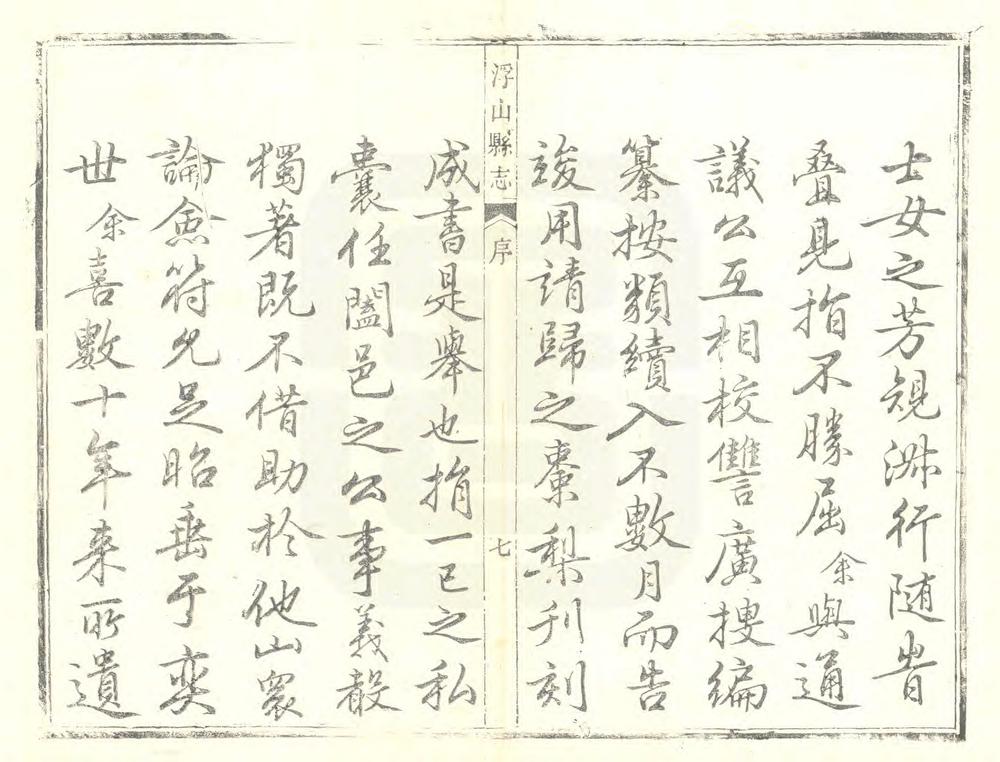 士女之芳規淑行隨旹
疊見指不勝屈余與通
議公互相校讐廣搜編
纂按類續入不數月而告
竣用請歸之棗梨刊刻
浮山縣志
序
七
成書是舉也捐一己之私
囊任闔邑之公事義聲
獨著既不借助於他山眾
論僉符允足昭垂于奕
世余喜數十年來所遺